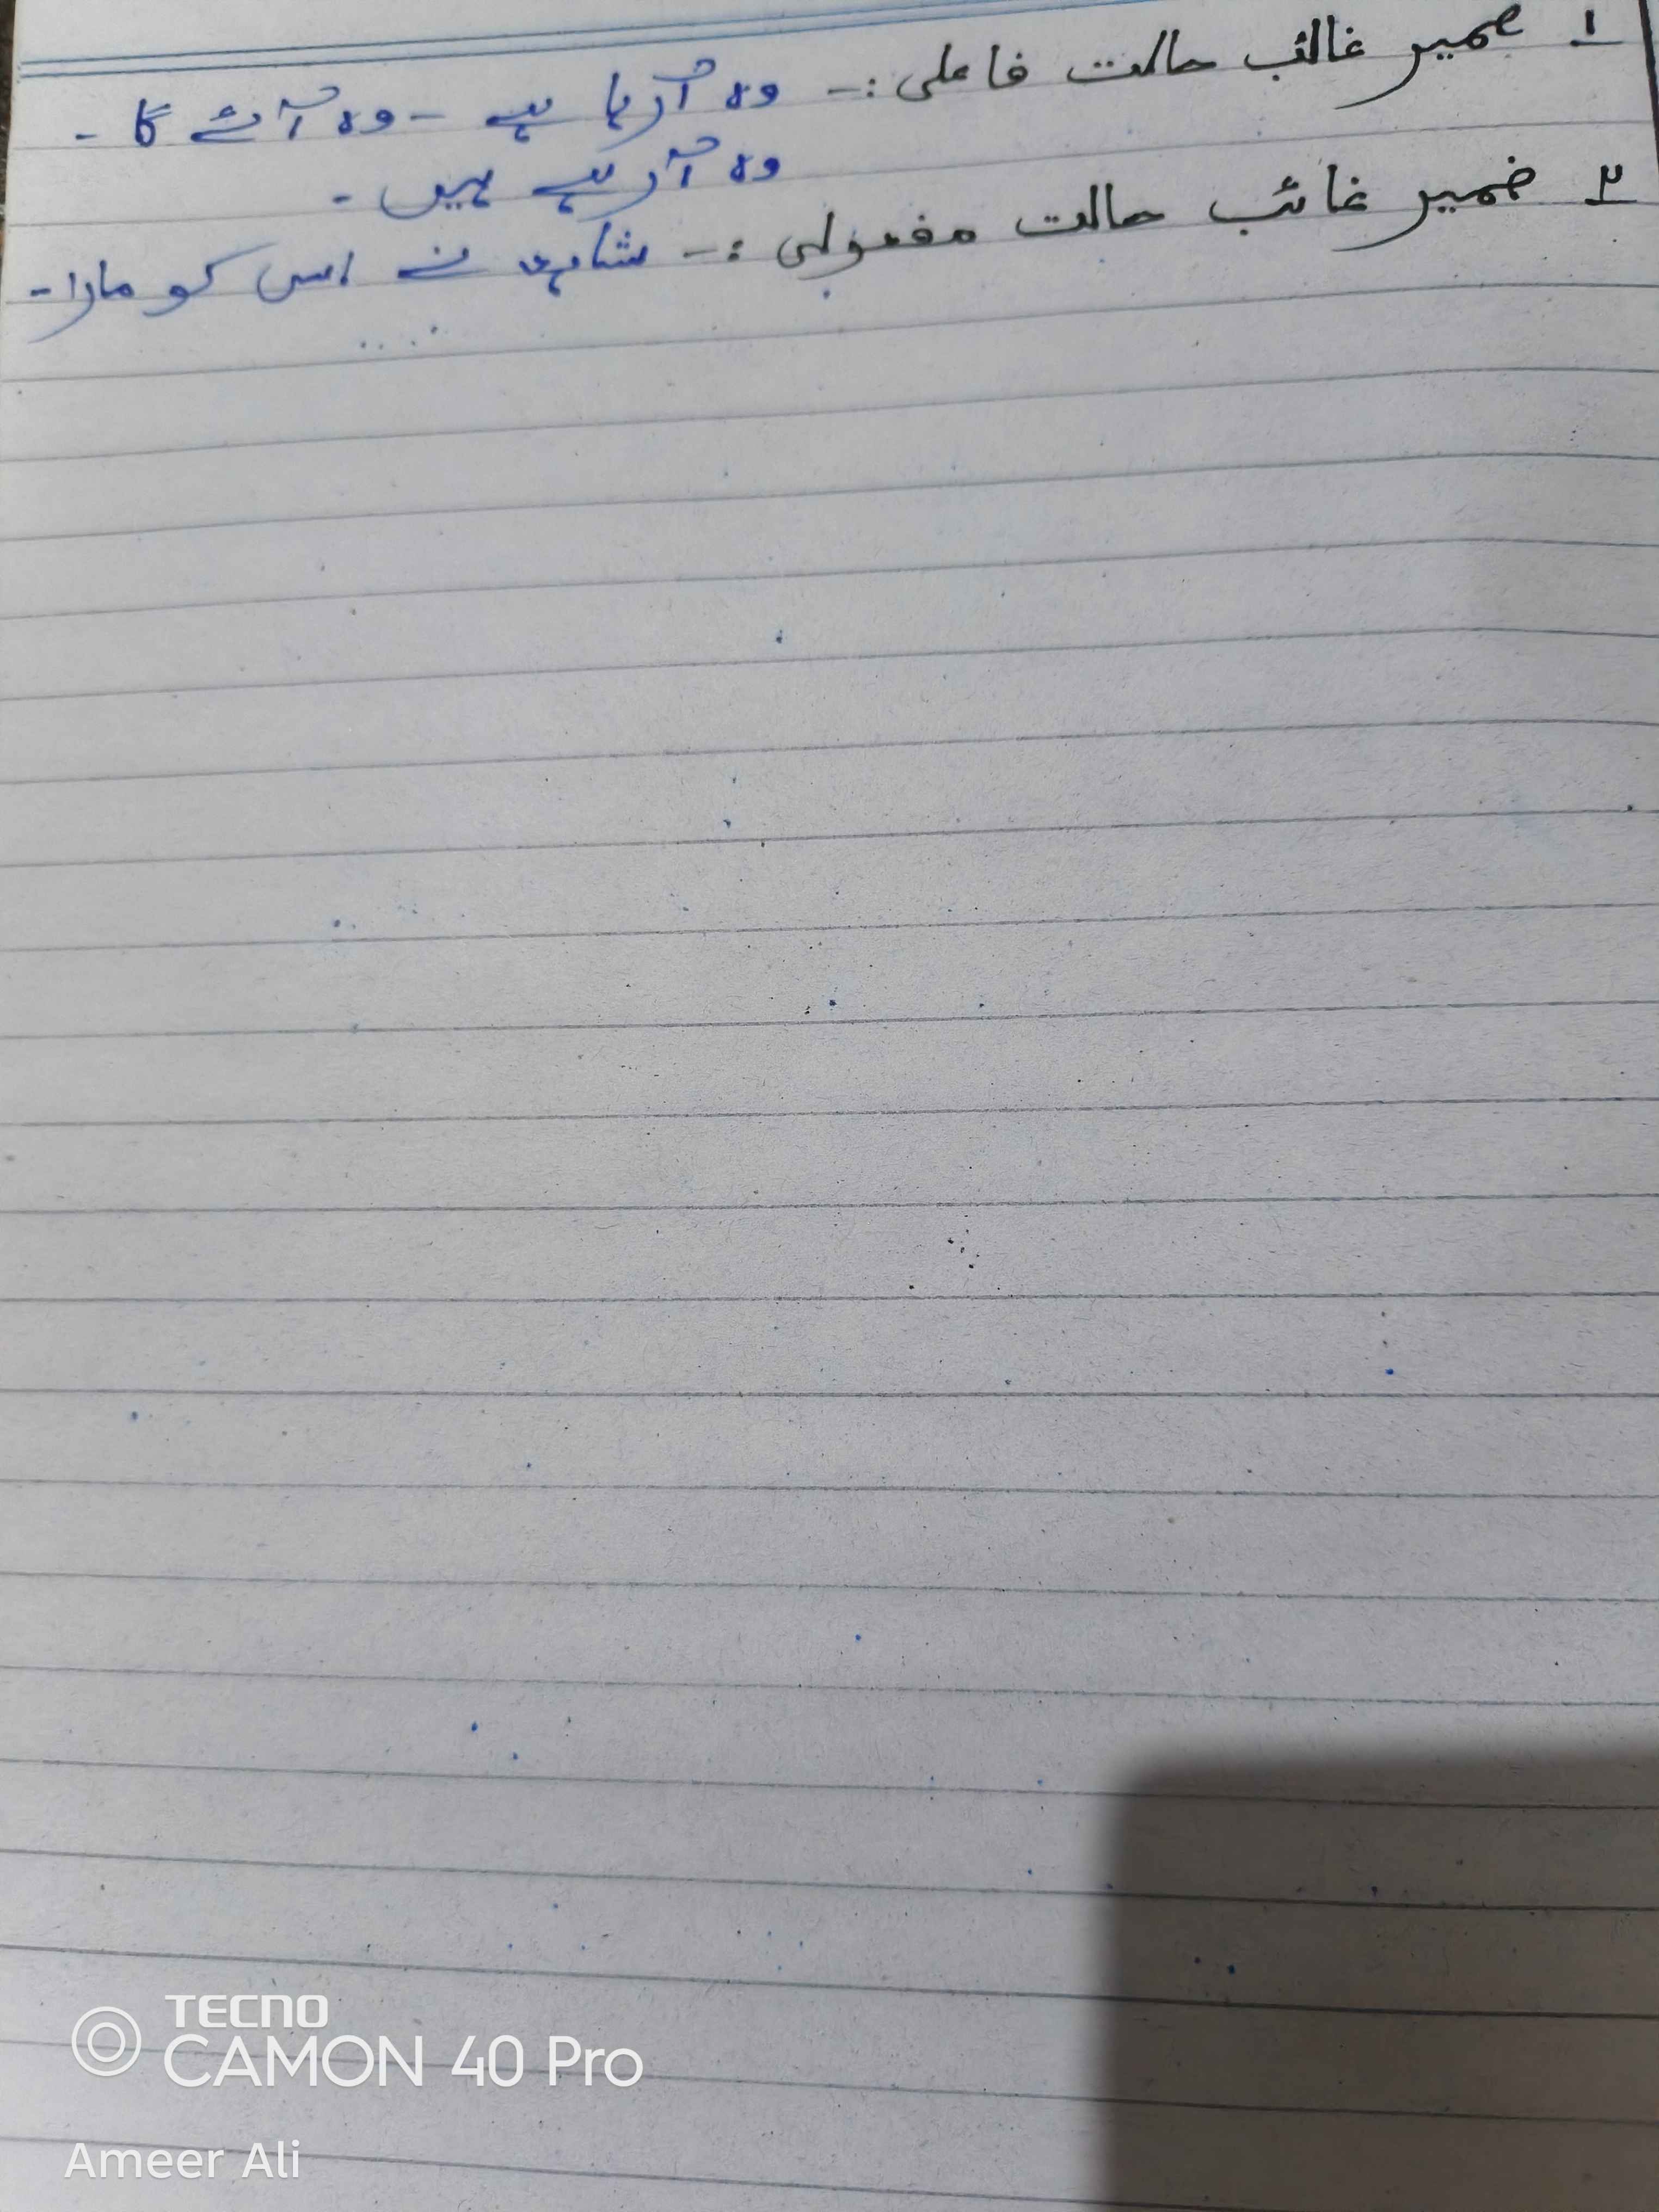 ۱ ضمیر غائب حالت فاعلی :- وہ آ رہا ہے - وہ آئے گا -
وہ آ رہے ہیں -
۲ ضمیر غائب حالت مفعولی :- شاہد نے اس کو مارا -
TECNO
CAMON 40 Pro
Ameer Ali